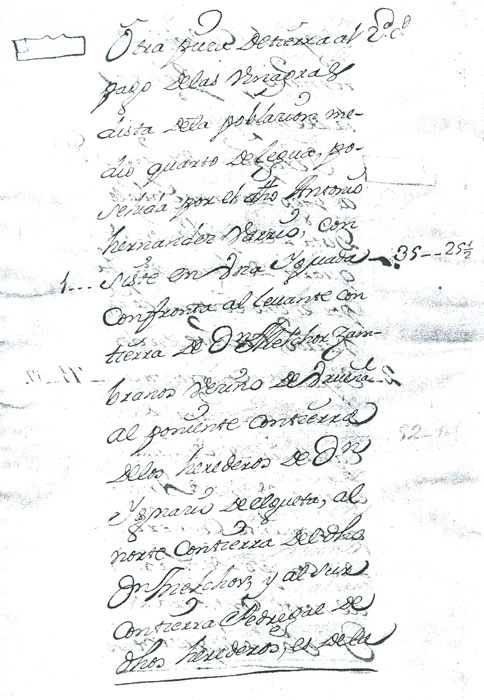 Otra pieza de tierra al
pago de las Vinagras
dista de la poblazion me-
dio quarto de legua, po-
seida por el dho Antonio
hernandez Varrio, con
1... siste en Una Yguada 35 -- 25 1/2
Confronta al levante con
tierra de Dn Melchor Zam-
branos Vezino de
al poniente con tierra
de los herederos de Dn
Ygnazio de elgueta, al
norte Con tierra del dho
Dn Melchor, y al sur
con tierra Pedregal de
dhos herederos, es de la